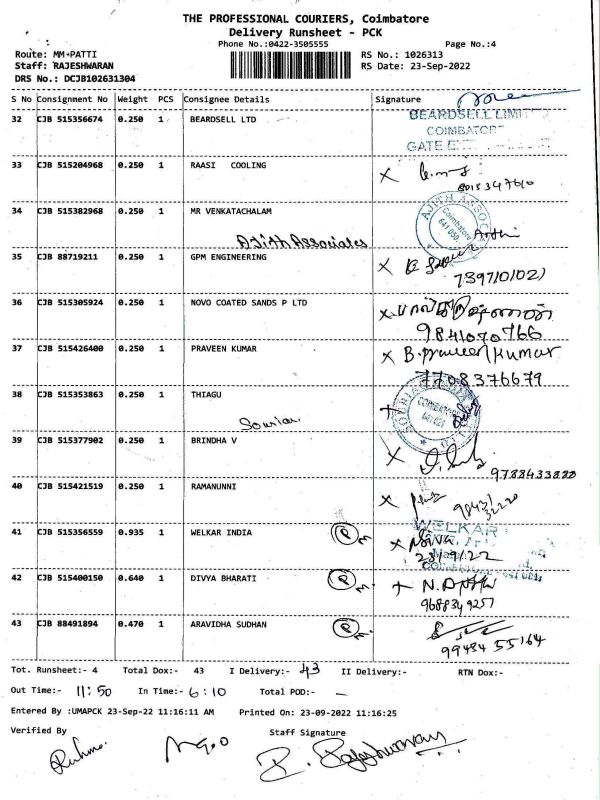 THE PROFESSIONAL COURIERS, Coimbatore
Delivery Runsheet - PCK
Phone No.:0422-3505555 Page No.:4
Route: MM-PATTI RS No.: 1026313
Staff: RAJESHWARAN RS Date: 23-Sep-2022
DRS No.: DCJB102631304
S No Consignment No Weight PCS Consignee Details Signature
32 CJB 515356674 0.250 1 BEARDSELL LTD BEARDSELL LIMITED
COIMBATORE
GATE
33 CJB 515204968 0.250 1 RAASI COOLING X
8015347610
34 CJB 515382968 0.250 1 MR VENKATACHALAM AJITH ASSOC
Coimbatore
Ajith Associates
35 CJB 88719211 0.250 1 GPM ENGINEERING X
36 CJB 515305924 0.250 1 NOVO COATED SANDS P LTD X
9841070766
37 CJB 515426400 0.250 1 PRAVEEN KUMAR X B.praveenkumar
7708376679
38 CJB 515353863 0.250 1 THIAGU COIMBATORE
39 CJB 515377902 0.250 1 BRINDHA V X
9788433820
40 CJB 515421519 0.250 1 RAMANUNNI X
41 CJB 515356559 0.935 1 WELKAR INDIA P X WELKAR
42 CJB 515400150 0.640 1 DIVYA BHARATI P
9688349257
43 CJB 88491894 0.470 1 ARAVIDHA SUDHAN P
99484 55164
Tot. Runsheet:- 4 Total Dox:- 43 I Delivery:- 43 II Delivery:- RTN Dox:-
Out Time:- 11:50 In Time:- 6:10 Total POD:- -
Entered By :UMAPCK 23-Sep-22 11:16:11 AM Printed On: 23-09-2022 11:16:25
Verified By Staff Signature